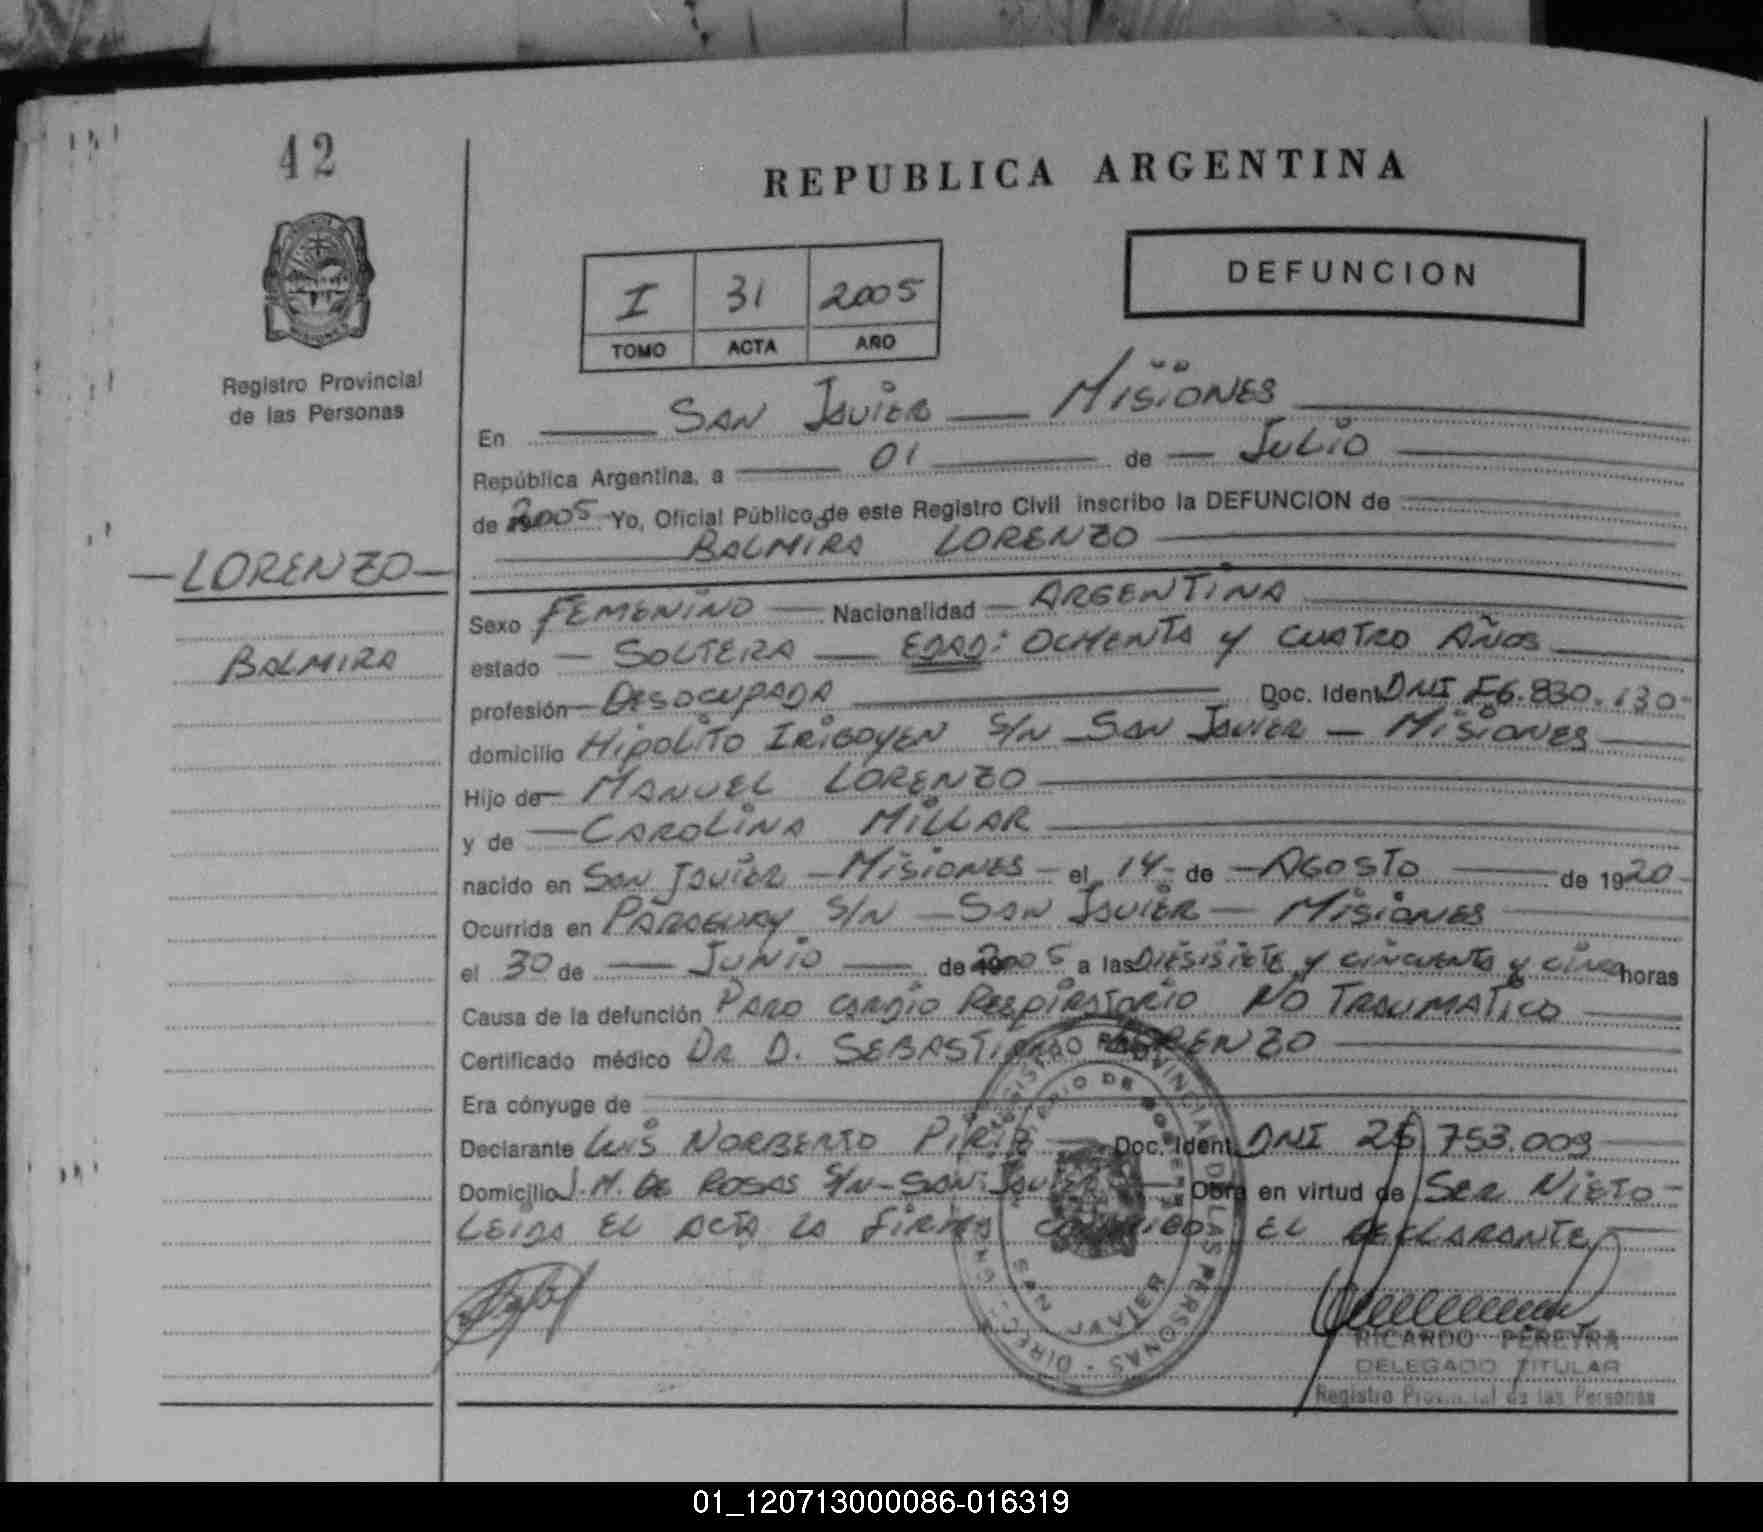 42
REPUBLICA ARGENTINA
I 31 2005
TOMO ACTA AÑO
DEFUNCION
Registro Provincial
de las Personas
En SAN JAVIER — MISIONES
República Argentina, a 01 de JULIO
de 2005 Yo, Oficial Público de este Registro Civil inscribo la DEFUNCION de
BALMIRA LORENZO
— LORENZO —
BALMIRA
Sexo FEMENINO — Nacionalidad — ARGENTINA
estado — SOLTERA — EDAD: OCHENTA y CUATRO AÑOS
profesión — DESOCUPADA Doc. Ident. DNI F6.830.130-
domicilio HIPOLITO IRIGOYEN S/N — SAN JAVIER — MISIONES
Hijo de — MANUEL LORENZO
y de — CAROLINA MILLAR
nacido en SAN JAVIER — MISIONES — el 14- de — AGOSTO — de 1920-
Ocurrida en PARAGUAY S/N — SAN JAVIER — MISIONES
el 30 de — JUNIO — de 2005 a las DIESISIETE y CINCUENTA y CINCO horas
Causa de la defunción PARO CARDIO RESPIRATORIO NO TRAUMATICO
Certificado médico DR D. SEBASTIAN LORENZO
Era cónyuge de
Declarante LUIS NORBERTO PIRIZ — Doc. Ident. DNI 26 753.009
Domicilio J.M. DE ROSAS S/N - SAN JAVIER — Obra en virtud de SER NIETO -
LEIDA EL ACTA LA FIRMA CONMIGO EL DECLARANTE
REGISTRO PROVINCIAL DE LAS PERSONAS - DIRECC
MINISTERIO DE GOBIERNO
SAN JAVIER
RICARDO PEREYRA
DELEGADO TITULAR
Registro Provincial de las Personas
01_120713000086-016319